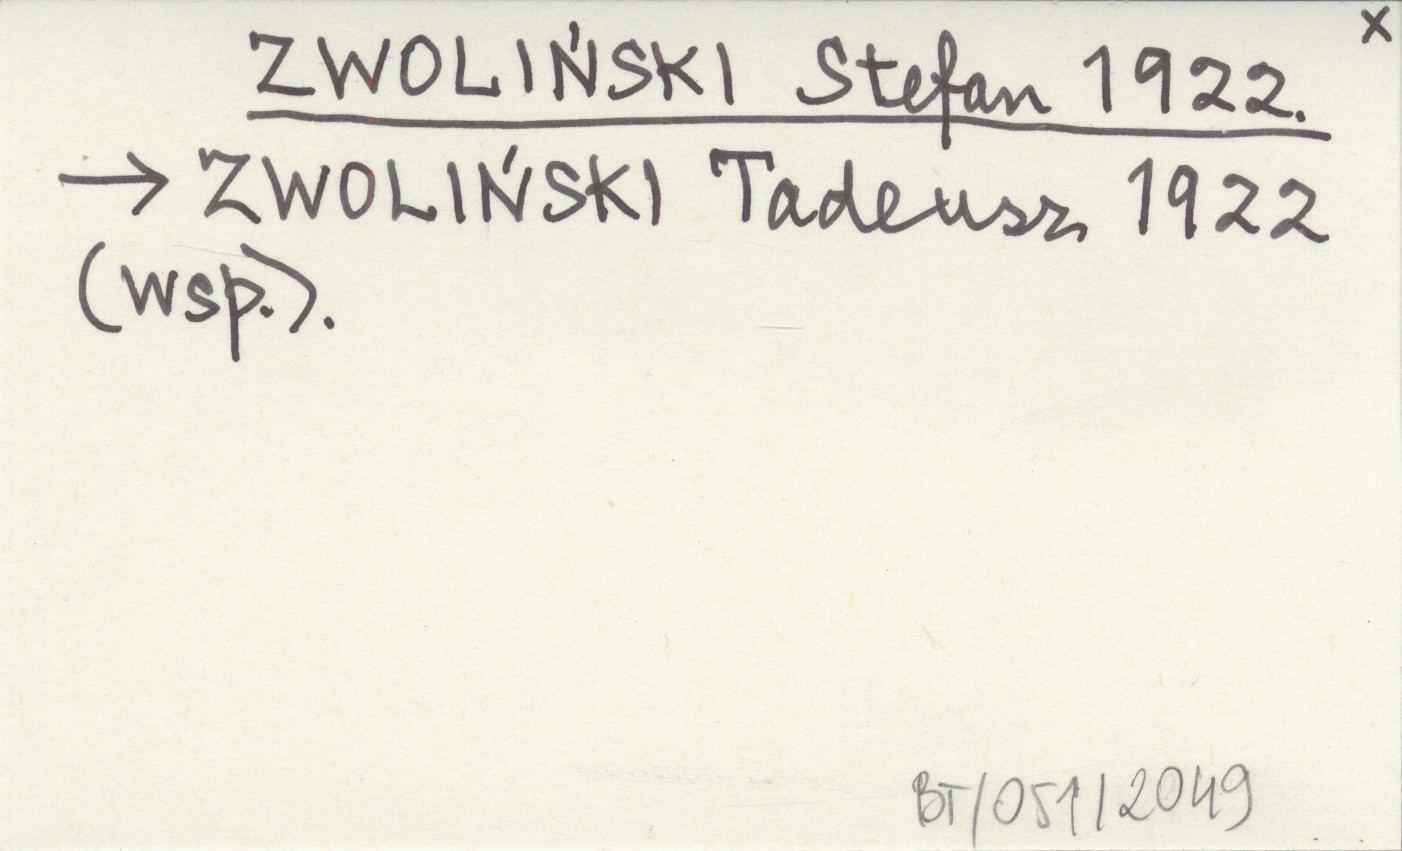 x
ZWOLIŃSKI Stefan 1922.
→ ZWOLIŃSKI Tadeusz 1922
(wsp.).
BT/051/2049